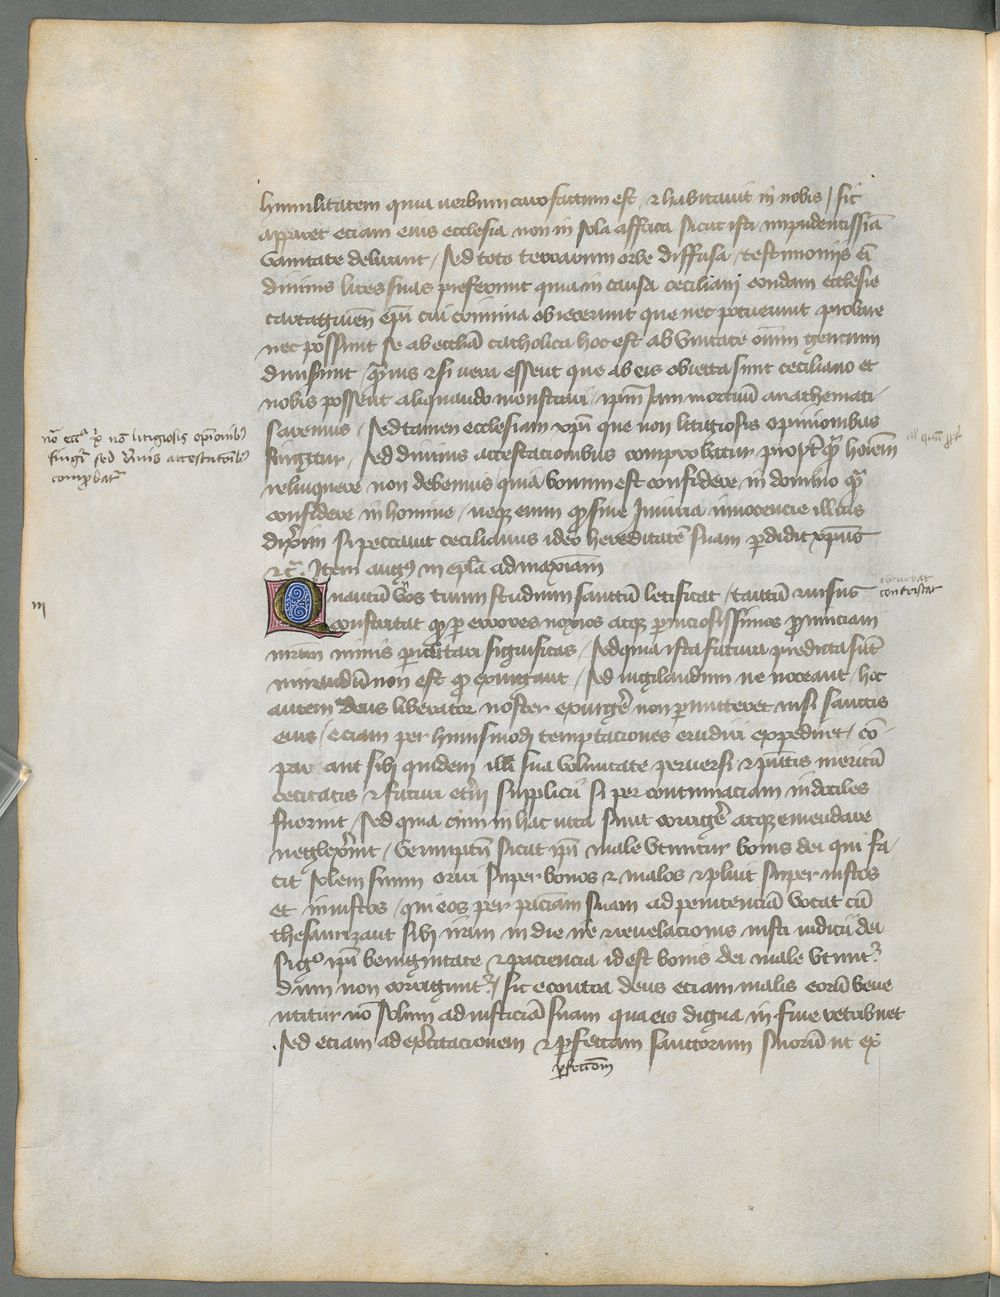 humilitatem quia uerbum caro factum est / et habitauit in nobis / sic
apparet eciam eius ecclesia non in sola affrica sicut isti impudentissiā
vanitate delirant / Sed toto terrarum orbe diffusa / testimonijs eī
diuinis lites suas preferunt quia in causa ceciliani condam ecclesie
cartaginen̄ ep̄i cui crimina obiecerunt que nec potuerunt probare
nec possunt se ab eccl̄ia catholica hoc est ab vnitate oīm gencium
diuiserunt / qͣuis et si uera essent que ab eis obiecta sunt ceciliano et
nobis possent aliquando monstrari / ip̄m Iam mortuū anathemati-
saremus / Sed tamen ecclesiam xp̄i que non litigiosis opinionibus
fingitur / Sed diuinis attestacionibus comprobatur propt̄ qͣ hoīem
relinquere non debemus quia bonum est confidere in domino qͣ
confidere in homine / neque enim qͦ siue Iniuria innocencie illius
dix̄im si peccauit cecilianus ideo hereditatē suam p̄didit xp̄us
etc̄. Item augꝰ in ep̄la ad maxīam
Quantū g̊os tuum studium sanctū letificat / tantū rursus
constaritat qͦ p̄ errores noxios atque p̄niciosissimos p̄uinciam
nr̄am nimis p̄iclitari significas / Sed quia ista futura predicta sūt
mirandū non est qͦ exurgant / Sed uigilandum ne noceant / hoc
autem deus liberator noster exurgēr non p̄mitteret nisi sanctos
eius / eciam per huiusmodj temptaciones erudiri expediret / cō-
parant sibi quidem illi sua voluntate peruersi et p̄ntis meritū
cecitatis et futuri et̄ni supplicij si per contumaciam indociles
fuerint / Sed quia cum in hac uita sunt corrigēr atque emendare
neglex̄int / Verumptn̄ sicut ip̄i male vtuntur bonis dei qui fa-
cit solem suum oriri super bonos et malos et pluit super iustos
et iniustos / qui eos per pac̄iam suam ad penitenciā vocat cū
thesaurizant sibi iram in die ire et reuelacionis iusti iudicij dei
Sigͦ ip̄i benignitate et paciencia id est bonis dei male vtuntͬ
dum non corriguntͬ / sic econtra deus eciam malis eorū bene
utitur nō solum ad iusticiā suam qua eis digna in fine retribuet
Sed eciam ad ex̄citacionem et p̄fectam sanctorum suorū ut ex
p̄fectōm
nō litigiosis opīonibꝫ
fingͬ sed diuinis attestatōibꝫ
comp̄batͬ
III
contristat